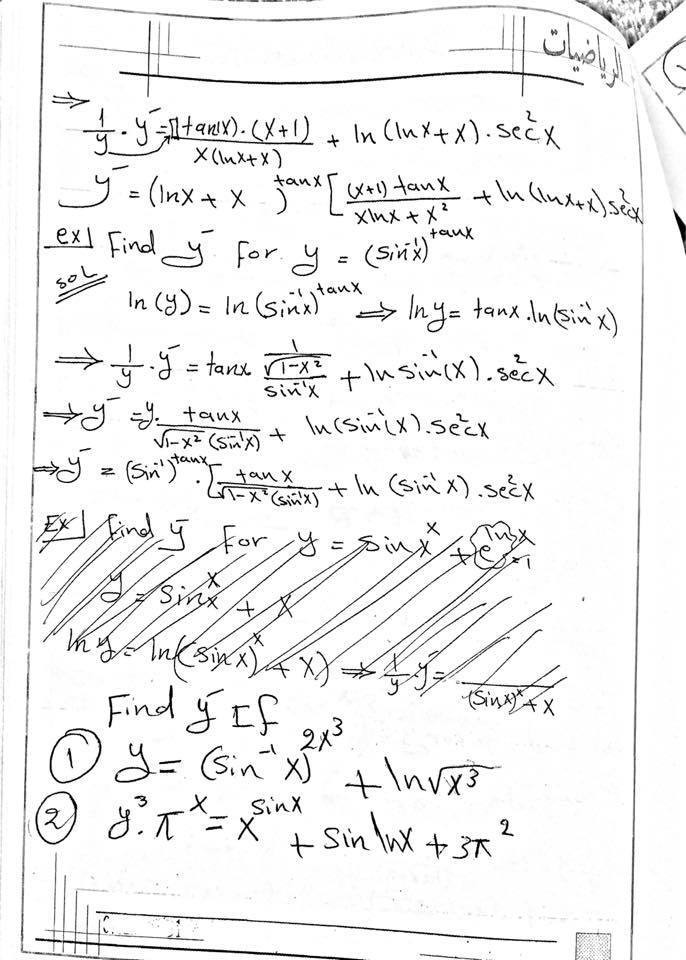 الرياضيات
⇒
1/y · y⁻ = [tan(x) · (x+1)] / x(lnx+x) + ln(lnx+x) · sec²x
y⁻ = (lnx + x)^tanx [ (x+1) tanx / xlnx + x² + ln(lnx+x) sec²x
ex] Find y⁻ For y = (sin⁻¹x)^tanx
sol
ln(y) = ln(sin⁻¹x)^tanx ⇒ lny = tanx.ln(sin⁻¹x)
⇒ 1/y · y⁻ = tanx (1/√(1-x²)) / sin⁻¹x + ln sin⁻¹(x) · sec²x
⇒ y⁻ = y. tanx / √(1-x²) (sin⁻¹x) + ln(sin⁻¹(x) . sec²x
⇒ y⁻ = (sin⁻¹)^tanx · [ tanx / √(1-x²) (sin⁻¹x) + ln (sin⁻¹x) . sec²x
Ex] Find y⁻ For y = sinx^x + e^lnx =1
y = sinx^x + x
ln y = ln((sinx)^x + x) ⇒ 1/y · y⁻ = / (sinx)^x + x
Find y⁻ If
① y = (sin⁻¹x)^2x³ + ln√x³
② y³. π^x = x^sinx + sin lnx + 3π²